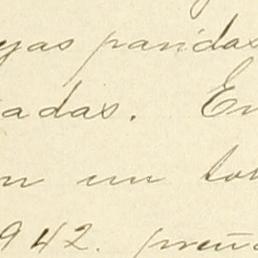 yas paridas
adas. En
n un to
942. preña